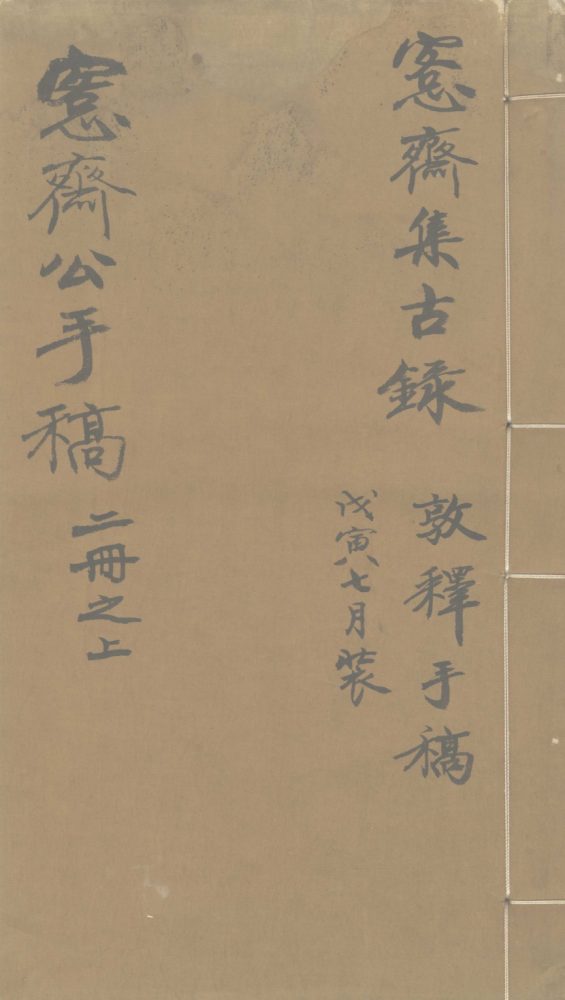 愙齋集古録 敦釋手稿
戊寅七月裝
愙齋公手稿 二冊之上